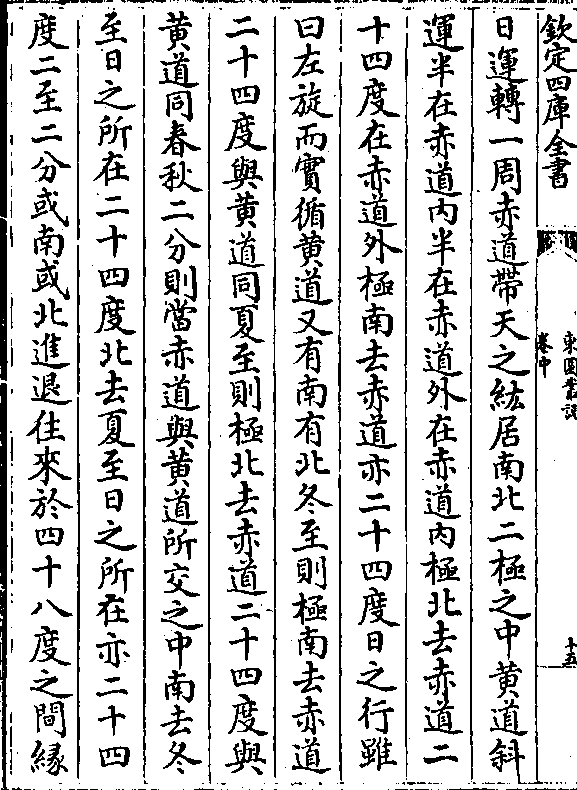 欽定四庫全書
東園叢說
卷中
十五
日運轉一周赤道帶天之紘居南北二極之中黄道斜
運半在赤道内半在赤道外在赤道内極北去赤道二
十四度在赤道外極南去赤道亦二十四度日之行雖
曰左旋而實循黄道又有南有北冬至則極南去赤道
二十四度與黄道同夏至則極北去赤道二十四度與
黄道同春秋二分則當赤道與黄道所交之中南去冬
至日之所在二十四度北去夏至日之所在亦二十四
度二至二分或南或北進退往來於四十八度之間緣